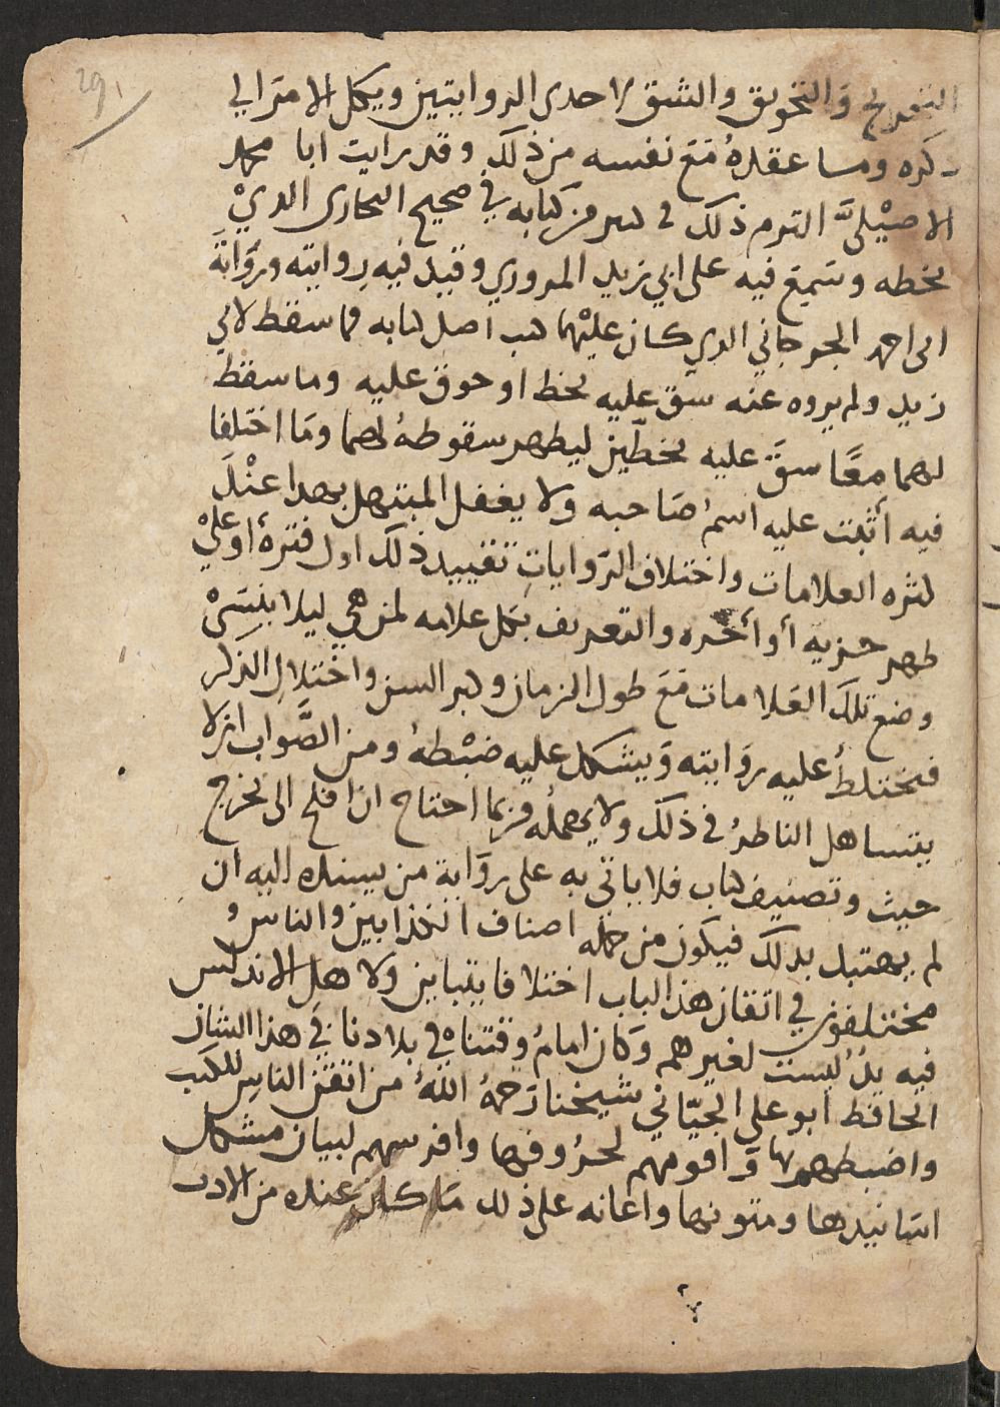 291
التخريج والتحويق والشق لاحدى الروايتين ويكمل الامر الى
ذكره وما عقده مع نفسه من ذلك وقد رايت ابا محمد
الاصيلي التزم ذلك في كتابه في صحيح البخاري الذي
بخطه وسمع فيه على ابي زيد المروزي وقيد فيه روايته ورواية
ابى احمد الجرجاني الذي كان عليهما كتب اصل كتابه فما سقط لابي
زيد ولم يروه عنه شق عليه بخط او حوق عليه وما سقط
لهما معًا شقَّ عليه بخطّين ليظهر سقوطهُ لهما ومَا اختلفا
فيه أثبت عليه اسمُ صَاحبه ولا يغفل المبتهل بهذا عنْدَ
كثره العلامات واختلاف الرّوايات تقييد ذلك اول دفتره أو علىْ
ظهر جزيه أو أخره والتعريف بكل علامه لمن هي ليلا ينسَىْ
وضع تلكَ العَلامات مَعَ طول الزمان وكبر السن واختلال الذكر
فتختلطُ عليه روَايته وَيشكل عليه ضبْطهُ ومن الصَّواب ان لا
يتساهل الناظرُ في ذلك ولا يهمله فربما احتاج ان افلح الى تخريج
حديث وتصنيف كتاب فلا ياتى به على روَاية من يسنده اليه ان
لم يهتبل بذلك فيكون من جمله اصناف الكذابين والناسُ
مختلفون في اتقان هذا الباب اختلافا يتباين ولاهل الاندلس
فيه يدٌ ليست لغيرهم وَكان امامُ وقتناهْ في بلادنا في هذا الشان
الحافظ ابو علي الجيّاني شيخنا رَحمهُ اللهُ من اتقن الناس للكتب
واضبطهم لها وَاقومهم لحرُوفها وافرسهم لبيان مشكل
اسَانيدها ومتونها واعانه على ذلك مَا كان عنده من الادب